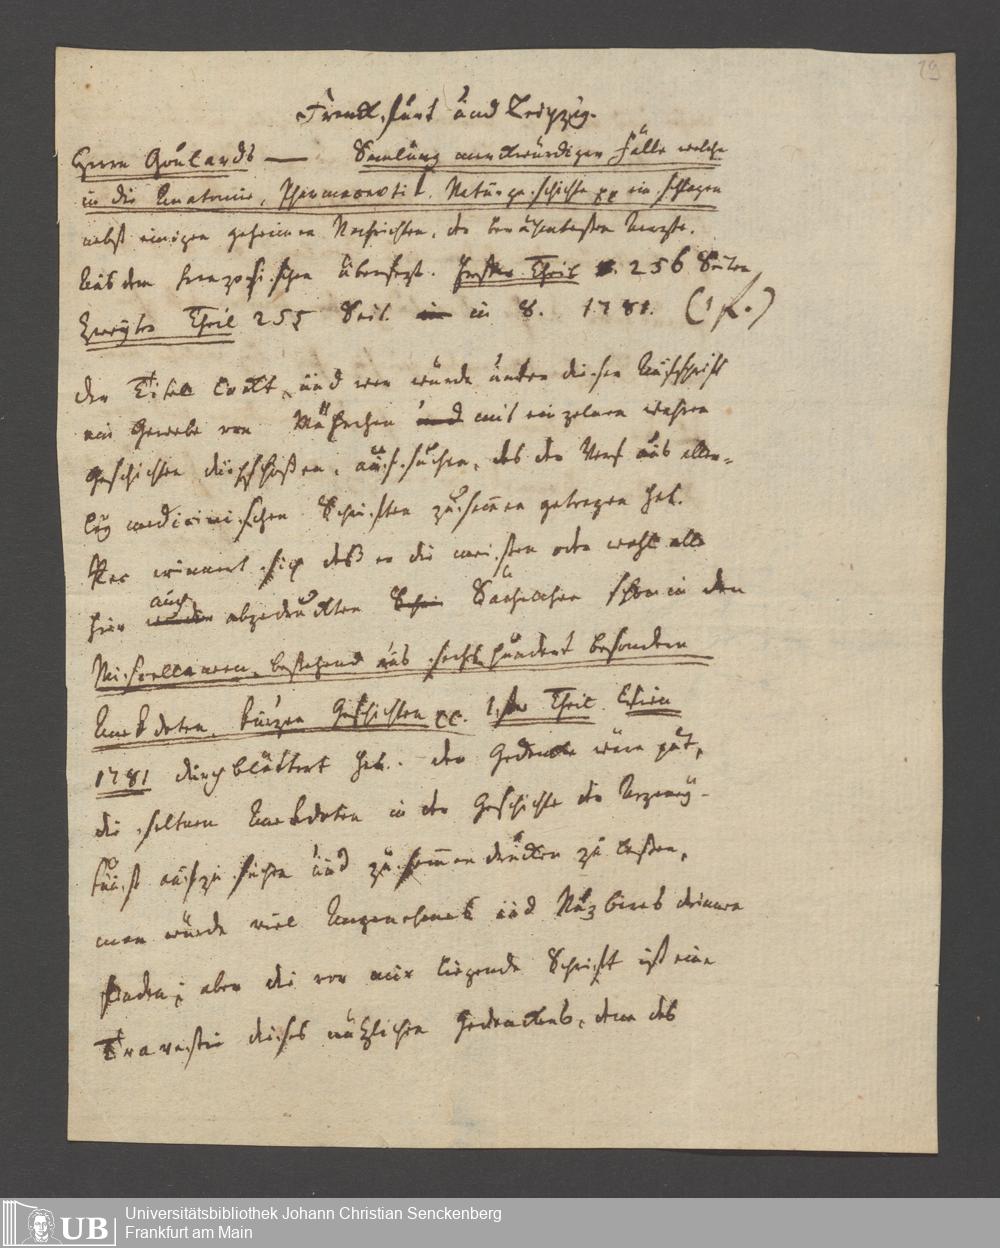 19
Franckfurt und Leipzig.
Herrn Goulards — Samlung merckwürdiger Fälle welche
in die Anatomie, Pharmacevtik, Naturgeschichte pp einschlagen
nebst einigen geheimen Nachrichten, der berühmtesten Aerzte.
Aus dem französischen übersezt. Erster Theil 256 Seiten
Zweyter Theil 255 Seit. in 8. 1781. (1 fl.)
der Titel lockt, und wer würde unter dieser Aufschrift
ein Gewebe von Mährchen und mit einzelnen wahren
Geschichten durchschossen, aufsuchen, das der Verf aus aller-
ley medicinischen Schriften zusammen getragen hat.
Rec erinnert sich daß er die meisten oder wohl alle
hier auch abgedruckten Sächelchen schon in den
Miscellaneen, bestehend aus sechshundert besondern
Anekdoten, kurzen Geschichten pp. 1ster Theil
1781 durchblättert hat. der Gedancke wäre gut,
die seltnen Anekdoten in der Geschichte der Arzeney-
kunst aufzusuchen und zusammendrucken zu lassen,
man würde viel Angenehmes und Nuzbares darinnen
finden; aber die vor mir liegende Schrift ist eine
Travestie dieses nützlichen Gedanckens, denn das
UB
Universitätsbibliothek Johann Christian Senckenberg
Frankfurt am Main